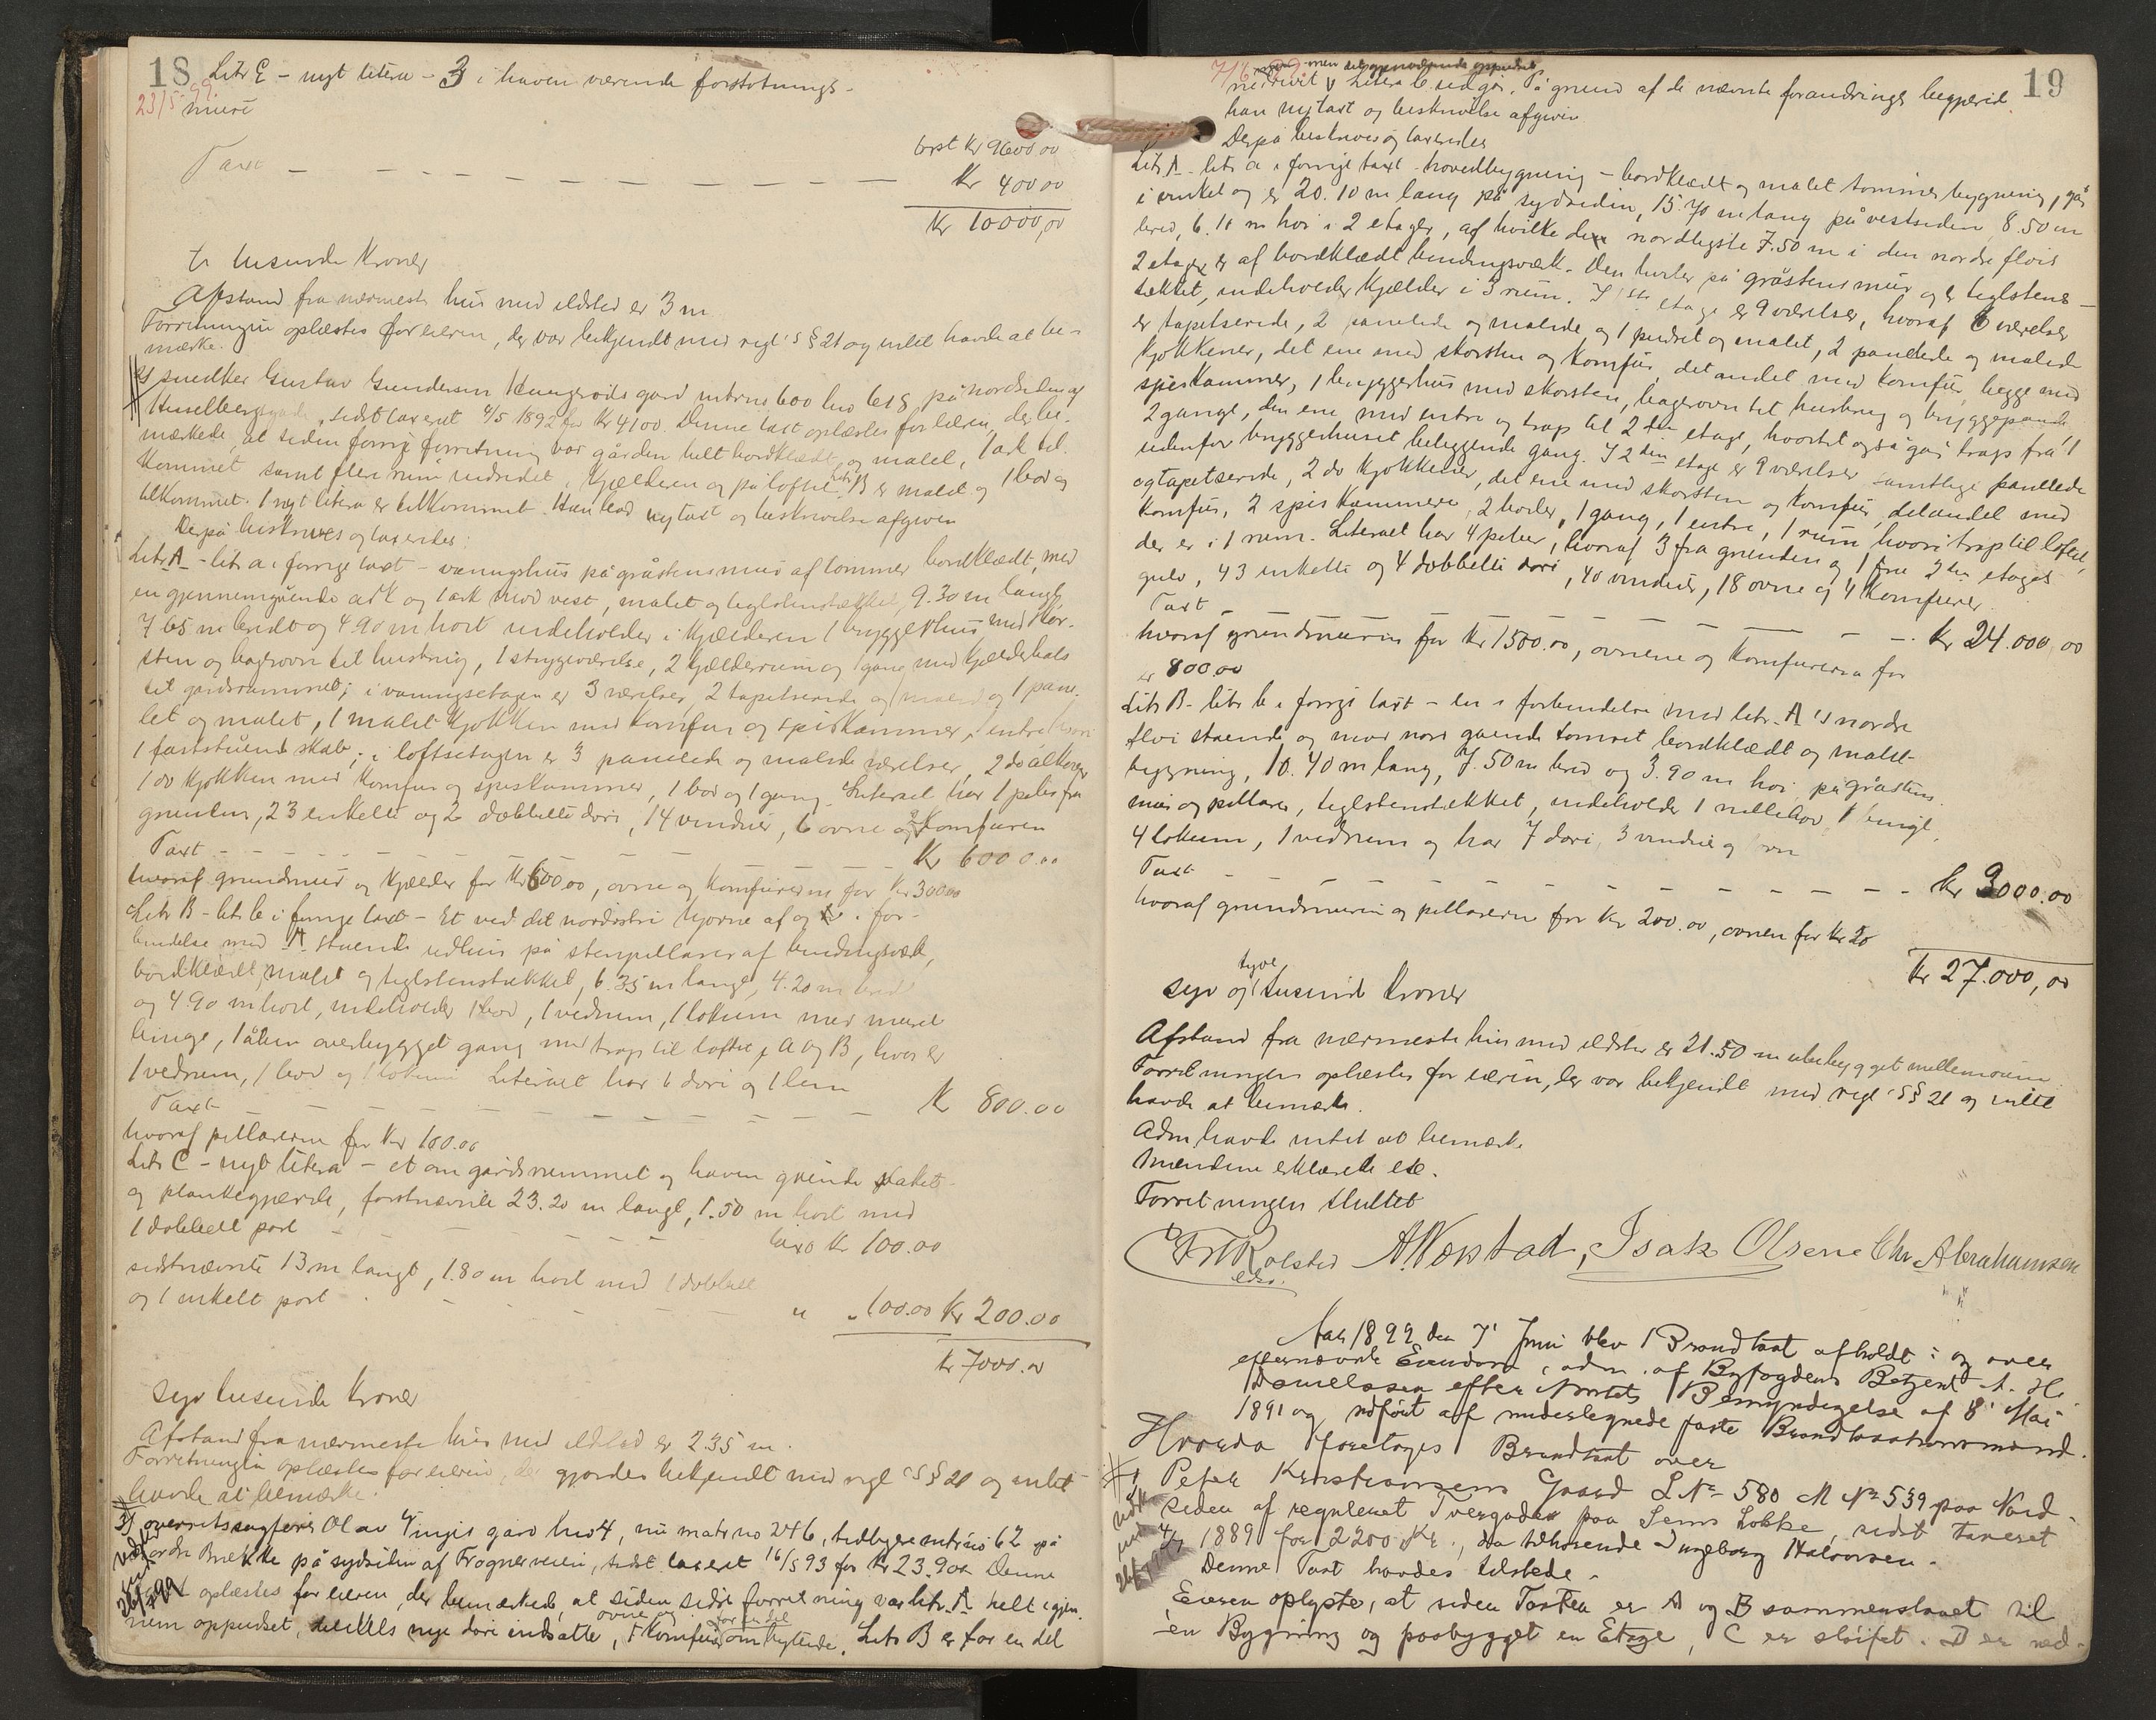 18
Litr E - nyt litera - 3 i haven værende forstøtnings-
23/5 99.
mure
Brst Kr 9600,00
Taxt - - - - - - - - - - Kr 400 00
Kr 10000,00
ti tusinde Kroner
Afstand fra nærmeste hus med ildsted er 3 m
Forretningen oplæstes for eieren, der var bekjendt med regl's § 21 og intet havde at be-
mærke.
snedker Gustav Gundersen Haugerøds gård mtrno 600 lno 618 på nordsiden af
sidst taxeret 4/5 1892 for Kr 4100. Denne taxt oplæstes for eieren, der be-
mærkede, at siden forrige forretning var gården helt bordklædt og malet, 1 ark til-
kommet samt flere rum indredet i kjælderen og på loftet. Litr B er malet og 1 bod og
tilkommet. 1 nyt litera er tilkommet. Han bad ny taxt og beskrivelse afgiven
Derpå beskreves og taxertes:
Litr A - litr a i forrige taxt - våningshus på gråstensmur af tømmer bordklædt, med
en gjennemgående ark og 1 ark mod vest, malet og teglstenstækket, 9.30 m langt
7 65 m bredt og 4 90 m høit indeholder i kjælderen 1 bryggerhus med skor-
sten og bagerovn til husbrug, 1 strygeværelse, 2 kjælderrum og 1 gang med kjælderhals
til gårdsrummet; i våningsetagen er 3 værelser, 2 tapetserede og malede og 1 pane-
let og malet, 1 malet kjøkken med komfur og spiskammer, 1 entre hvori
1 fastståend skab; i loftsetagen er 3 panelede og malede værelser, 2 do alkover
1 do kjøkken med komfur og spiskammer, 1 bod og 1 gang. Literaet har 1 pibe fra
grunden, 23 enkelte og 2 dobbelte døre, 14 vinduer, 6 ovne og 2 komfurer
Taxt - - - - - - - - - Kr 6000.00
hvoraf grundmur og kjælder for Kr 600 00, ovne og komfurerne for Kr 300 00
Litr B - litr b i forrige taxt - Et ved det nordøstre hjørne af og i for-
bindelse med A stående udhus på stenpillarer af bindingsværk,
bordklædt, malet og teglstenstækket, 6.35 m langt, 4.20 m bredt
og 4 90 m høit, indeholder 1 bod, 1 vedrum, 1 lokum med muret
binge, 1 åben overbygget gang med trap til loftet i A og B, hvor er
1 vedrum, 1 bod og 1 lokum Literaet har 6 døre og 1 lem
Taxt - - - - - - - - - - Kr 800.00
hvoraf pillarerne for Kr 100.00
Litr C - nyt litera - et om gårdsrummet og haven gående stakit-
og plankegjærde, førstnævnte 23.20 m langt, 1.50 m høit med
1 dobbelt port - - - - - - - taxt Kr 100.00
sidstnævnte 13 m langt, 1.80 m høit med 1 dobbelt
og 1 enkelt port - - - - - - - " " 100.00 Kr 200.00
Kr 7000.00
Syv tusinde Kroner
Afstand fra nærmeste hus med ildsted er 2 35 m.
Forretningen oplæstes for eieren, der gjordes bekjendt med regl's § 21 og intet
havde at bemærke.
3) overretssagfører Olav gård lno 4, nu matr no 246, tidligere mtr no 62 på
nordre Brække på sydsiden af Frognerveien, sidst taxeret 16/5 93 for Kr 23.900. Denne
taxt oplæstes for eieren, der bemærkede, at siden sidste forretning var litr. A helt igjen-
ovne og for en del
nem oppudset, deels nye døre indsatte, komfurer ombyttede. Litr B er for en del
19
7/6 99.
men tilgjenværende oppudset
nedrevet Litera C udgår. På grund af de nævnte forandringer begjæred
han ny taxt og beskrivelse afgiven
Derpå beskreves og taxertes
Litr A - litr a i forrige taxt - hovedbygning - bordklædt og malet tømmerbygning, går
i vinkel og er 20.10 m lang på sydsiden, 15.70 m lang på vestsiden, 8.50 m
bred, 6.10 m høi i 2 etager, af hvilke den nordligste 7.50 m i den nordre fløis
2 etager er af bordklædt bindingsværk. Den hviler på gråstensmur og er teglstens-
tækket, indeholder kjælder i 3 rum. I 1ste etage er 9 værelser, hvoraf 6 værelser
er tapetserede, 2 panelede og malede og 1 pudset og malet, 2 panelede og malede
kjøkkener, det ene med skorsten og komfur, det andet med komfur, begge med
spiskammer, 1 bryggerhus med skorsten, bagerovn til husbrug og bryggepande
2 gange, den ene med entre og trap til 2den etage, hvortil også går trap fra 1
udenfor bryggerhuset beliggende gang. I 2den etage er 9 værelser samtlige panelede
og tapetserede, 2 do kjøkkener, det ene med skorsten og komfur, det andet med
komfur, 2 spiskammere, 2 boder, 1 gang, 1 entre, 1 rum hvori trap til loftet,
der er i 1 rum. Literaet har 4 piber, hvoraf 3 fra grunden og 1 fra 2den etages
gulv, 43 enkelte og 4 dobbelte døre, 40 vinduer, 18 ovne og 4 komfurer.
Taxt - - - - - - - - - Kr 24.000,00
hvoraf grundmuren for Kr 1500.00, ovnene og komfurerne for
Kr 800.00
Litr B - litr b i forrige taxt - en i forbindelse med litr. A's nordre
fløi stående og mod nord gående tømret bordklædt og malet
bygning, 10.40 m lang, 7.50 m bred og 3.90 m høi på gråstens-
mur og pillarer, teglstenstækket, indeholder 1 rullebod 1 binge,
4 lokum, 1 vedrum og har 7 døre, 3 vinduer og ovn
Taxt - - - - - - - - - Kr 3000.00
hvoraf grundmuren og pillarerne for Kr 200.00, ovnen for Kr 20
Kr 27.000,00
tyve
syv og tusinde Kroner
Afstand fra nærmeste hus med ildsted er 21.50 m ubebygget mellemrum
Forretningen oplæstes for eieren, der var bekjendt med regl's § 21 og intet
havde at bemærke.
Adm havde intet at bemærke
Mændene erklærede etc.
Forretningen sluttet
Fr. Rolsted A. Næstad, Isak Olsen Chr. Abrahamsen
edsv.
Aar 1899 den 7' Juni blev Brandtaxt afholdt i og over
efternævnte Eiendom, adm. af Byfogdens Betjent A. H.
Danielssen efter Amtets Bemyndigelse af 8' Mai
1891 og udført af undertegnede faste Brandtaxationsmænd.
Hvorda foretoges Brandtaxt over
1) Peter Kristiansens Gaard L No 580 M No 539 paa Nord-
siden af reguleret Tvergade paa Jens Løkke, sidst taxeret
4/7 1889 for 2200 Kr., da tilhørende Ingeborg Halvorsen.
Denne Taxt havdes tilstede.
Eieren oplyste, at siden Taxten er A og B sammenslaaet til
en Bygning og paabygget en Etage, C er sløifet. D er ned-